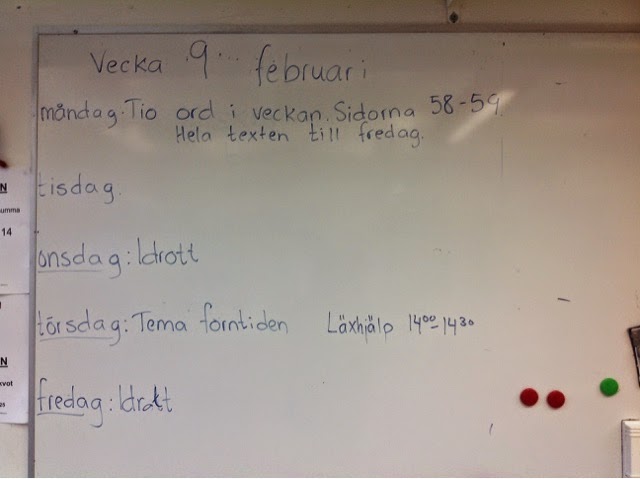 Vecka 9... februari
måndag. Tio ord i veckan. Sidorna 58-59.
Hela texten till fredag.
tisdag.
onsdag: Idrott
torsdag: Tema forntiden Läxhjälp 1400-1430
fredag: Idrott
N
umma
14
N
kvot